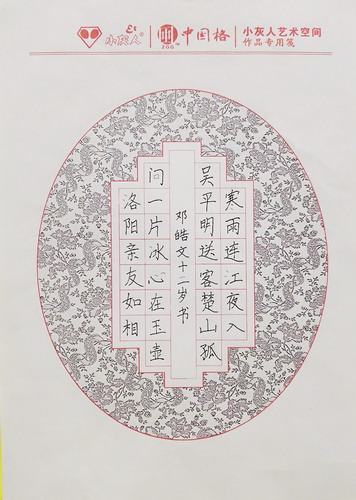 小灰人®
中国格
ZGG
小灰人艺术空间
作品专用笺
寒雨连江夜入
吴平明送客楚山孤
洛阳亲友如相
问一片冰心在玉壶
邓皓文十二岁书